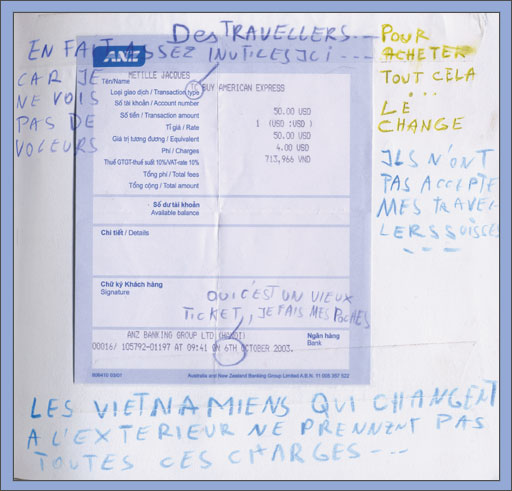 Des TRAVELLERS...
EN FAIT ASSEZ INUTILES ICI ...
CAR JE
NE VOIS
PAS DE
VOLEURS
POUR
ACHETER
TOUT CELA
...
LE
CHANGE
ILS N'ONT
PAS ACCEPTE
MES TRAVEL
LERS SUISSES
---
ANZ
METILLE JACQUES
Tên/Name
Loại giao dịch / Transaction type TC BUY AMERICAN EXPRESS
Số tài khoản / Account number
Số tiền / Transaction amount 50.00 USD
Tỉ giá / Rate 1 (USD :USD )
Giá trị tương đương / Equivalent 50.00 USD
Phí / Charges 4.00 USD
Thuế GTGT-thuế suất 10%/VAT-rate 10% 713,966 VND
Tổng phí / Total fees
Tổng cộng / Total amount
Số dư tài khoản
Available balance
Chi tiết / Details
Chữ ký Khách hàng
Signature
OUI C'EST UN VIEUX
TICKET, JE FAIS MES POCHES
ANZ BANKING GROUP LTD (HANOI) Ngân hàng
Bank
00016/ 105792-01197 AT 09:41 ON 6TH OCTOBER 2003.
Australia and New Zealand Banking Group Limited A.B.N. 11 005 357 522
LES VIETNAMIENS QUI CHANGENT
A L'EXTERIEUR NE PRENNENT PAS
TOUTES CES CHARGES---